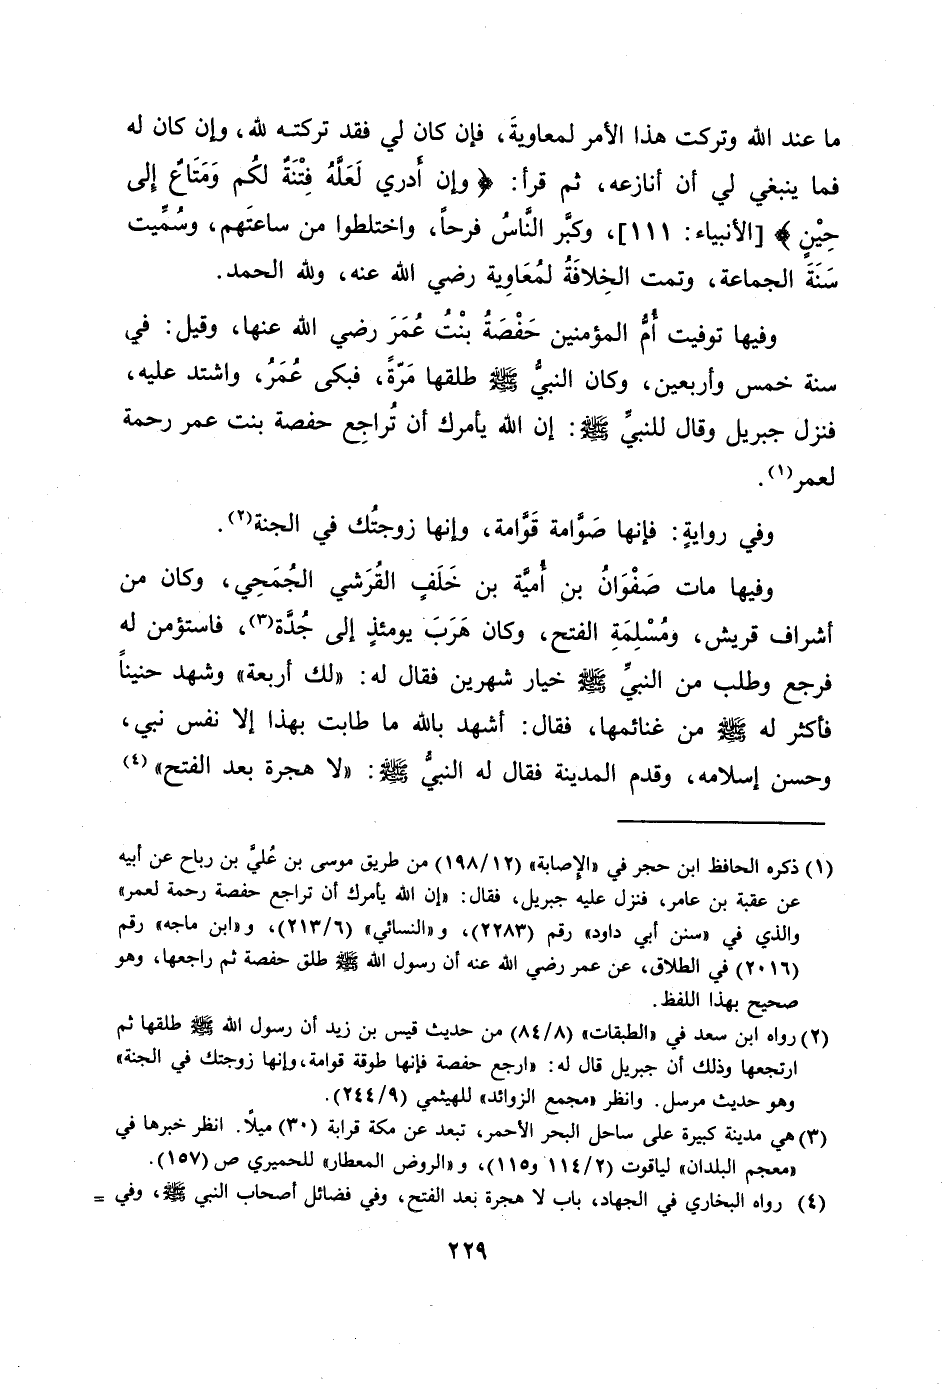 ما عند الله وتركت هذا الأمر لمعاويةَ، فإن كان لي فقد تركتـه لله، وإن كان له
فما ينبغي لي أن أنازعه، ثم قرأ: ﴿ وإن أَدري لَعَلَّهُ فِتْنَةٌ لكُم وَمَتَاعٌ إلى
حِيْنٍ ﴾ [الأنبياء: ١١١]، وكبَّر النَّاسُ فرحاً، واختلطوا من ساعتَهم، وسُمِّيت
سَنَةَ الجماعة، وتمت الخِلافَةُ لمُعَاوية رضي الله عنه، ولله الحمد.
وفيها توفيت أُمُّ المؤمنين حَفْصَةُ بنْتُ عُمَرَ رضي الله عنها، وقيل: في
سنة خمس وأربعين، وكان النبيُّ ﷺ طلقها مَرّةً، فبكى عُمَرُ، واشتد عليه،
فنزل جبريل وقال للنبيِّ ﷺ: إن الله يأمرك أن تُراجِع حفصة بنت عمر رحمة
لعمر(١).
وفي روايةٍ: فإنها صَوَّامة قَوَّامة، وإنها زوجتُك في الجنة(٢).
وفيها مات صَفْوَانُ بن أُميَّة بن خَلَفٍ القُرَشي الجُمَحِي، وكان من
أشراف قريش، ومُسْلِمَةِ الفتح، وكان هَرَبَ يومئذٍ إلى جُدَّة(٣)، فاستؤمن له
فرجع وطلب من النبيِّ ﷺ خيار شهرين فقال له: «لك أربعة» وشهد حنيناً
فأكثر له ﷺ من غنائمها، فقال: أشهد بالله ما طابت بهذا إلا نفس نبي،
وحسن إسلامه، وقدم المدينة فقال له النبيُّ ﷺ: «لا هجرة بعد الفتح» (٤)
(١) ذكره الحافظ ابن حجر في «الإصابة» (١٩٨/١٢) من طريق موسى بن عُليَّ بن رباح عن أبيه
عن عقبة بن عامر، فنزل عليه جبريل، فقال: «إن الله يأمرك أن تراجع حفصة رحمة لعمر»
والذي في «سنن أبي داود» رقم (٢٢٨٣)، و«النسائي» (٢١٣/٦)، و«ابن ماجه» رقم
(٢٠١٦) في الطلاق، عن عمر رضي الله عنه أن رسول الله ﷺ طلق حفصة ثم راجعها، وهو
صحيح بهذا اللفظ.
(٢) رواه ابن سعد في «الطبقات» (٨٤/٨) من حديث قيس بن زيد أن رسول الله ﷺ طلقها ثم
ارتجعها وذلك أن جبريل قال له: «ارجع حفصة فإنها طوقة قوامة،وإنها زوجتك في الجنة»
وهو حديث مرسل. وانظر «مجمع الزوائد» للهيثمي (٢٤٤/٩).
(٣) هي مدينة كبيرة على ساحل البحر الأحمر، تبعد عن مكة قرابة (٣٠) ميلاً. انظر خبرها في
«معجم البلدان» لياقوت (١١٤/٢ و١١٥)، و«الروض المعطار» للحميري ص (١٥٧).
(٤) رواه البخاري في الجهاد، باب لا هجرة بعد الفتح، وفي فضائل أصحاب النبي ﷺ، وفي =
٢٢٩